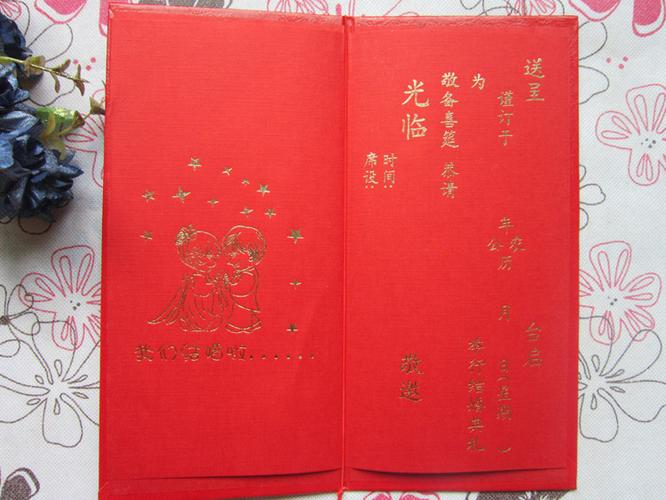 我们结婚啦......
送呈 台启
谨订于 年 月 日(星期 )
公历
农
为 举行结婚典礼
敬备喜筵 恭请
光临 敬邀
时间:
席设: